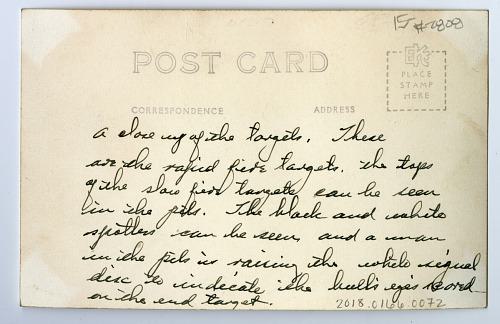 15 #2808
POST CARD
EKC
PLACE
STAMP
HERE
CORRESPONDENCE
ADDRESS
A close up of the targets. These
are the rapid fire targets. The tops
of the slow fire targets can be seen
in the pits. The black and white
spotters can be seen and a man
in the pits is raising the white signal
disc to indicate the bull's eye scored
on the end target.
2018.0166.0072